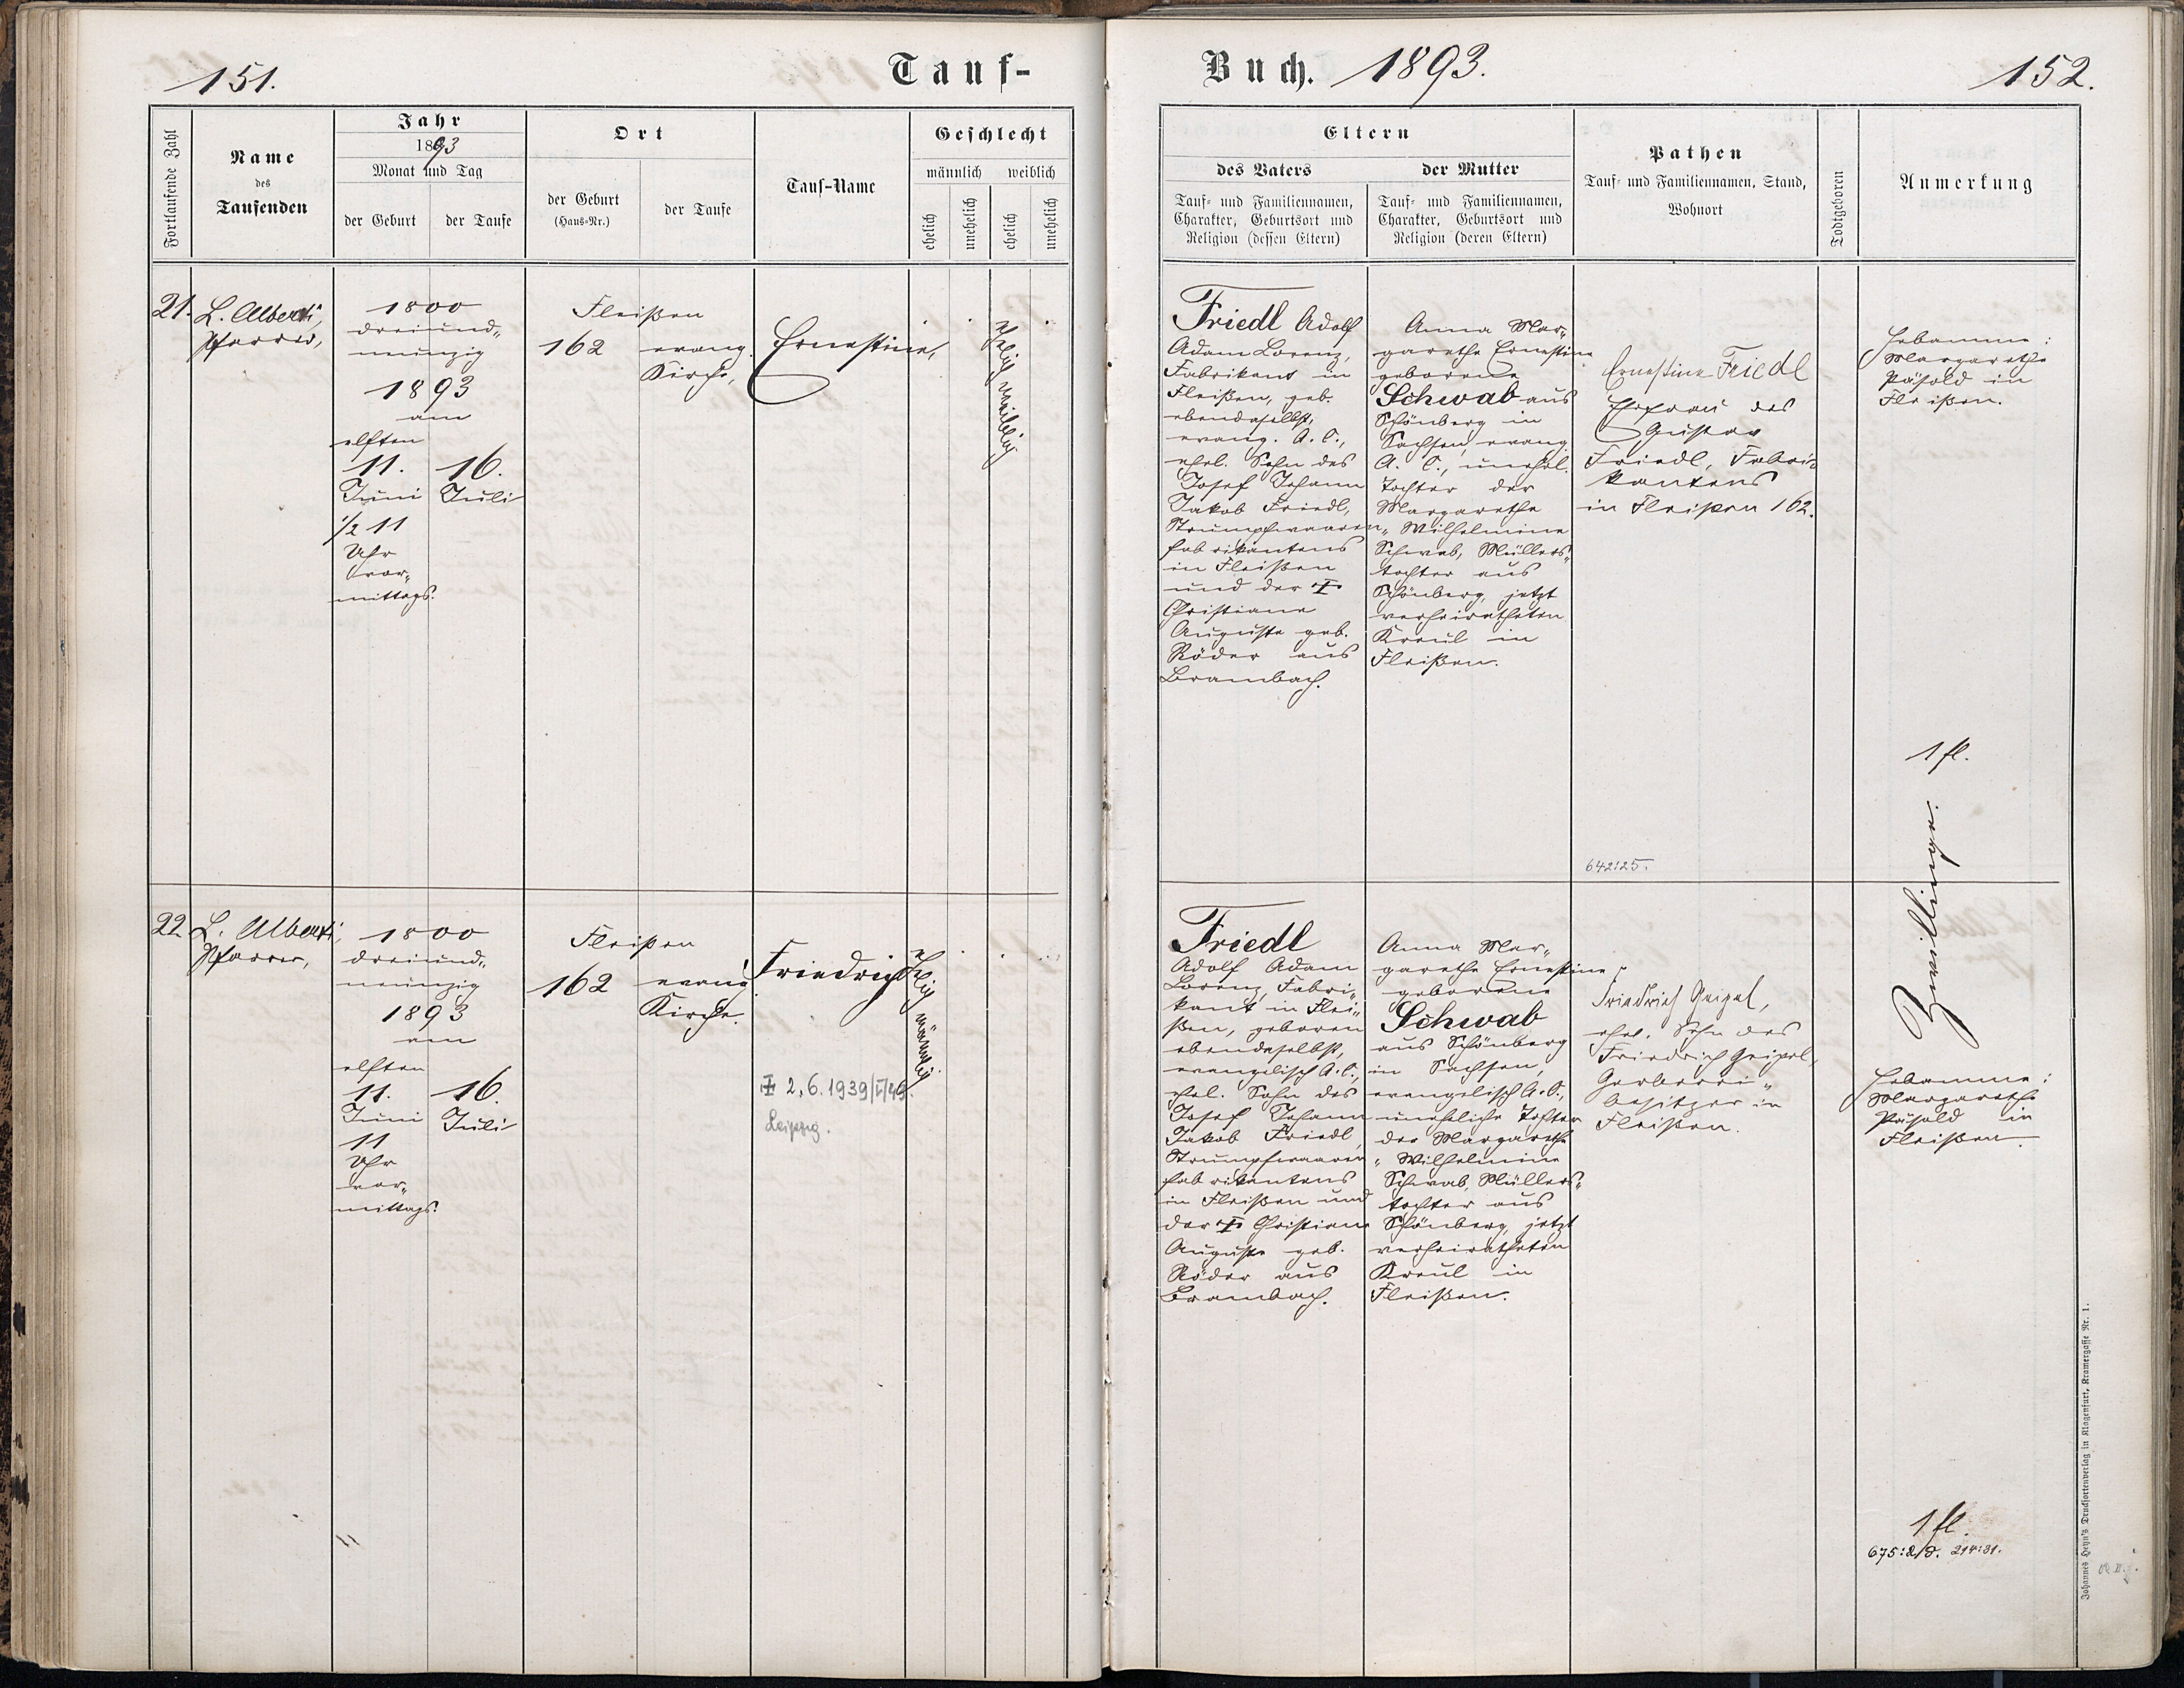 151.
Tauf-
Fortlaufende Zahl
Name
des
Taufenden
Jahr
1893
Monat und Tag
der Geburt
der Taufe
Ort
der Geburt
(Haus-Nr.)
der Taufe
Tauf-Name
Geschlecht
männlich
weiblich
ehelich
unehelich
ehelich
unehelich
21.
L. Alberti,
Pfarrer,
1800
dreiund„
neunzig
1893
am
elften
11.
Juni
½ 11
Uhr
vor„
mittags.
16.
Juli
Fleißen
162
evang.
Kirche,
Ernestine,
ehelig weiblig
22.
L. Alberti,
Pfarrer,
1800
dreiund„
neunzig
1893
am
elften
11.
Juni
11
Uhr
vor„
mittags.
16.
Juli
Fleißen
162
evang.
Kirche.
Friedrich
ehelig männlig
2.6.1939/I/46.
Leipzig.
Buch. 1893.
152.
Eltern
des Vaters
Tauf- und Familiennamen,
Charakter, Geburtsort und
Religion (dessen Eltern)
der Mutter
Tauf- und Familiennamen,
Charakter, Geburtsort und
Religion (deren Eltern)
Pathen
Tauf- und Familiennamen, Stand,
Wohnort
Todtgeboren
Anmerkung
Friedl Adolf
Adam Lorenz,
Fabrikant in
Fleißen, geb.
ebendaselbst,
evang. A. C.,
ehel. Sohn des
Josef Johann
Jakob Friedl,
Strumpfwaaren„
fabrikantens
in Fleißen
und der ‡
Christiane
Auguste geb.
Röder aus
Brambach.
Anna Mar„
garethe Ernestine
geborene
Schwab aus
Schönberg in
Sachsen, evang.
A. C., unehel.
Tochter der
Margarethe
Wilhelmine
Schwab, Müllers„
tochter aus
Schönberg, jetzt
verheiratheten
Kreul in
Fleißen.
Ernestine Friedl
Ehefrau des
Gustav
Friedl, Fabri„
kantens
in Fleißen 162.
642:25.
Hebamme:
Margarethe
Päsold in
Fleißen.
1 fl.
Zwillinge.
Friedl
Adolf Adam
Lorenz, Fabri„
kant in Flei„
ßen, geboren
ebendaselbst,
evangelisch A. C.,
ehel. Sohn des
Josef Johann
Jakob Friedl,
Strumpfwaaren„
fabrikantens
in Fleißen und
der ‡ Christiane
Auguste geb.
Röder aus
Brambach.
Anna Mar„
garethe Ernestine
geborene
Schwab
aus Schönberg
in Sachsen,
evangelisch A. C.,
uneheliche Tochter
der Margarethe
Wilhelmine
Schwab, Müllers„
tochter aus
Schönberg, jetzt
verheiratheten
Kreul in
Fleißen.
Friedrich Geipel,
ehel. Sohn des
Friedrich Geipel,
Gerberei„
besitzer in
Fleißen.
Hebamme:
Margarethe
Päsold in
Fleißen.
1 fl.
214:31.
Johannes Heyn's Drucksortenverlag in Klagenfurt, Kramergasse Nr. 1.